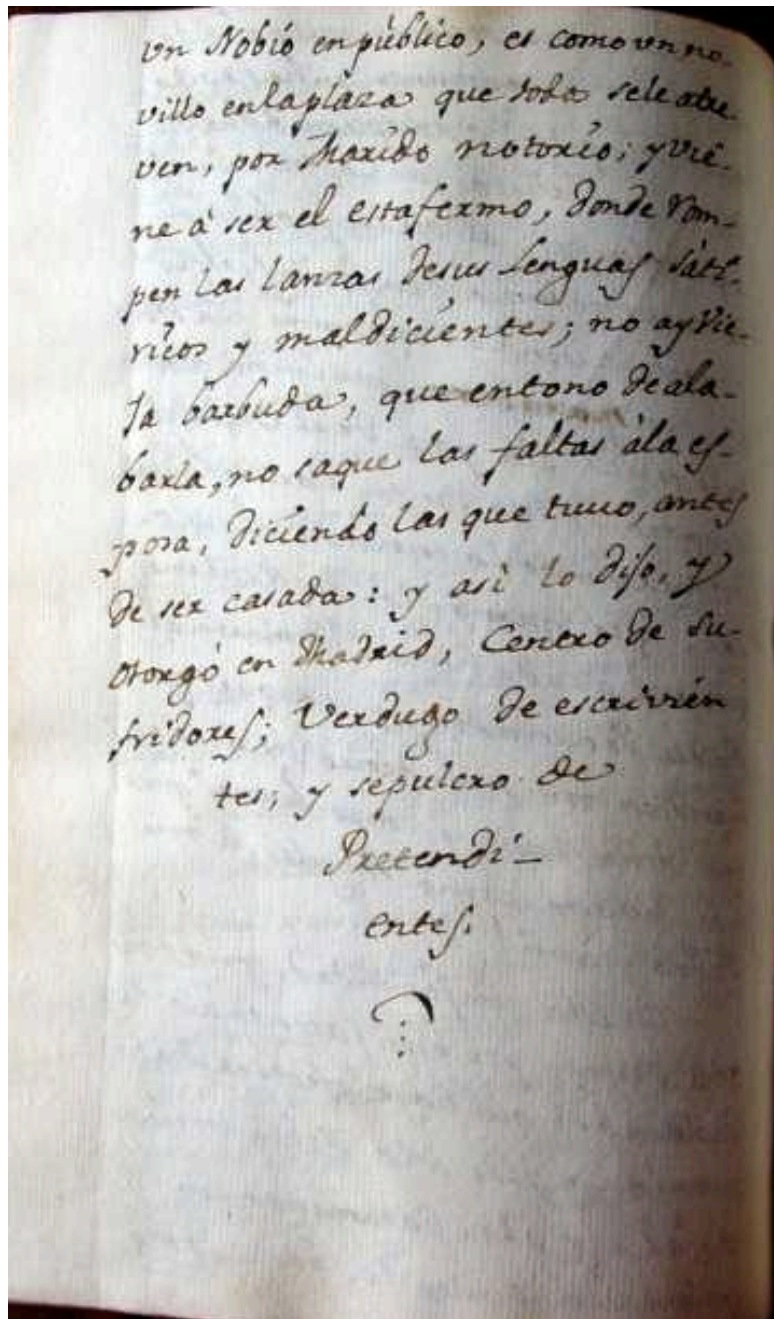 vn Nobió en público, es como vn no-
villo en la plaza que todos se le atre-
ven, por Marido notorio; y vie-
ne à ser el estafermo, donde rom-
pen las lanzas de sus lenguas sati-
ricos y maldicientes; no ay vie-
ja barbuda, que en tono de ala-
barla, no saque las faltas à la es-
posa, diciendo las que tuuo, antes
de ser casada: y asi lo dijo, y
otorgó en Madrid, Centro de su-
fridores; Verdugo de escrivien
tes; y sepulcro de
Pretendi-
entes.